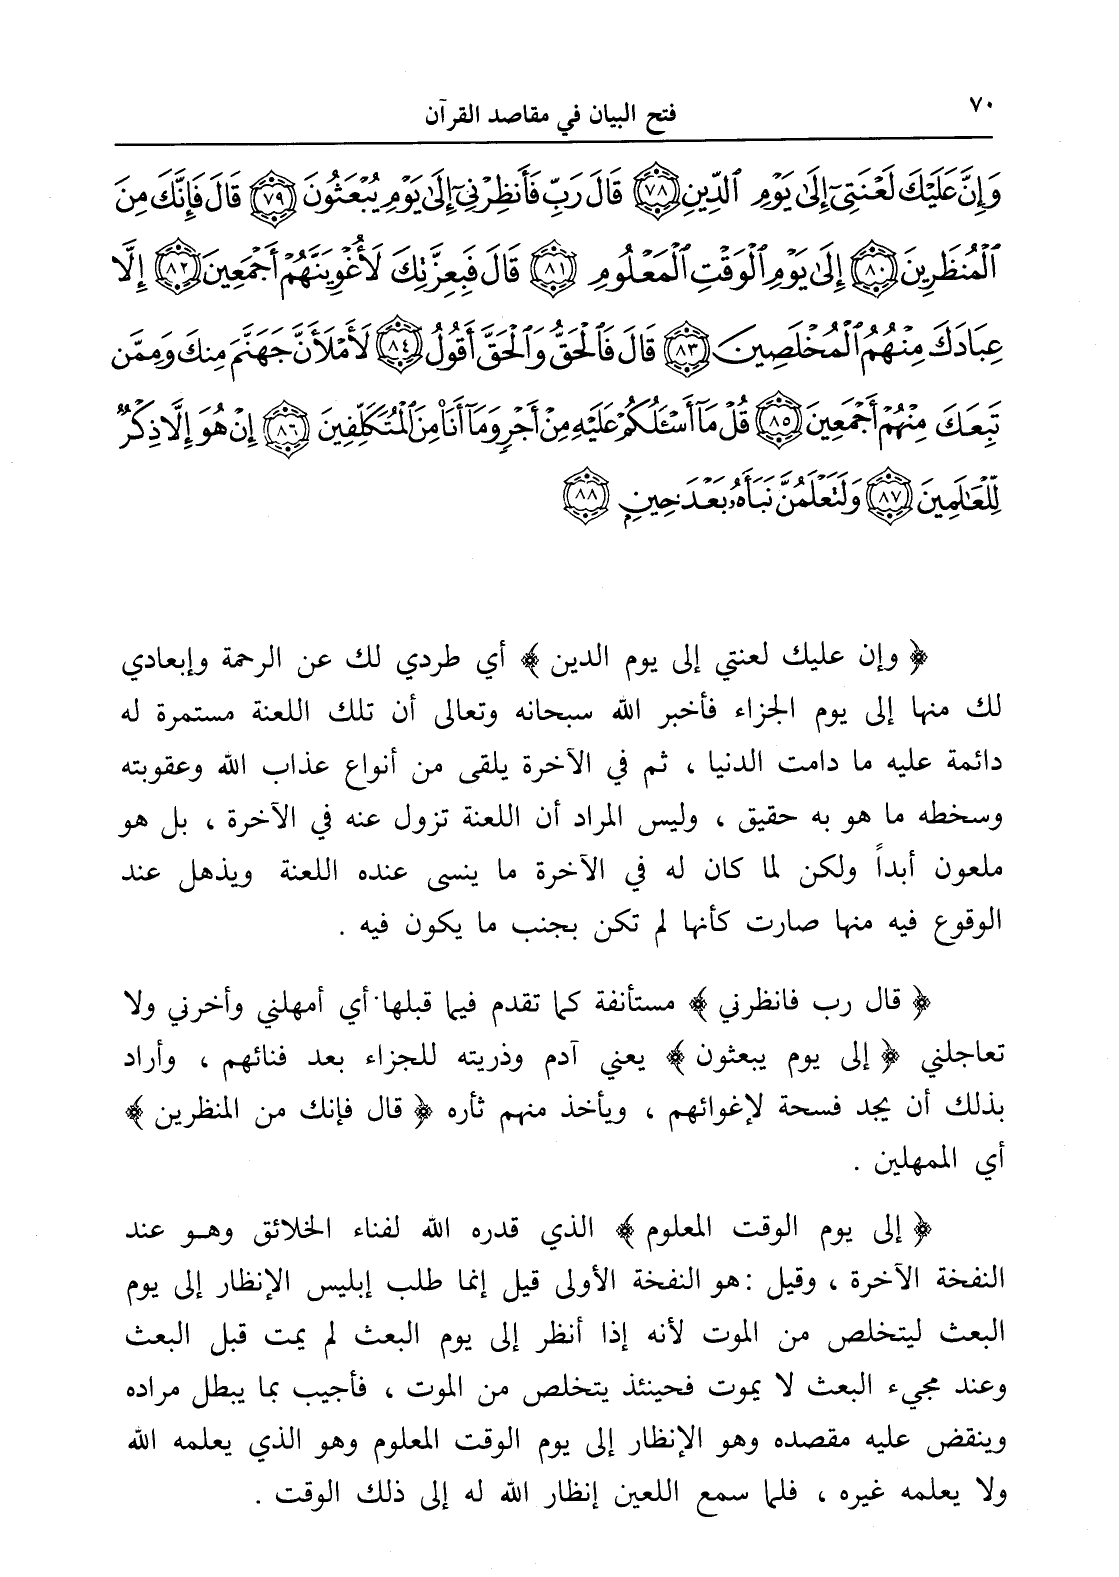 ٧٠
فتح البيان في مقاصد القرآن
وَإِنَّ عَلَيْكَ لَعْنَتِىٓ إِلَىٰ يَوْمِ ٱلدِّينِ ٧٨ قَالَ رَبِّ فَأَنظِرْنِىٓ إِلَىٰ يَوْمِ يُبْعَثُونَ ٧٩ قَالَ فَإِنَّكَ مِنَ
ٱلْمُنظَرِينَ ٨٠ إِلَىٰ يَوْمِ ٱلْوَقْتِ ٱلْمَعْلُومِ ٨١ قَالَ فَبِعِزَّتِكَ لَأُغْوِيَنَّهُمْ أَجْمَعِينَ ٨٢ إِلَّا
عِبَادَكَ مِنْهُمُ ٱلْمُخْلَصِينَ ٨٣ قَالَ فَٱلْحَقُّ وَٱلْحَقَّ أَقُولُ ٨٤ لَأَمْلَأَنَّ جَهَنَّمَ مِنكَ وَمِمَّن
تَبِعَكَ مِنْهُمْ أَجْمَعِينَ ٨٥ قُلْ مَآ أَسْـَٔلُكُمْ عَلَيْهِ مِنْ أَجْرٍ وَمَآ أَنَا۠ مِنَ ٱلْمُتَكَلِّفِينَ ٨٦ إِنْ هُوَ إِلَّا ذِكْرٌ
لِّلْعَـٰلَمِينَ ٨٧ وَلَتَعْلَمُنَّ نَبَأَهُۥ بَعْدَ حِينٍۭ ٨٨
﴿ وإن عليك لعنتي إلى يوم الدين ﴾ أي طردي لك عن الرحمة وإبعادي
لك منها إلى يوم الجزاء فأخبر الله سبحانه وتعالى أن تلك اللعنة مستمرة له
دائمة عليه ما دامت الدنيا ، ثم في الآخرة يلقى من أنواع عذاب الله وعقوبته
وسخطه ما هو به حقيق ، وليس المراد أن اللعنة تزول عنه في الآخرة ، بل هو
ملعون أبداً ولكن لما كان له في الآخرة ما ينسى عنده اللعنة ويذهل عند
الوقوع فيه منها صارت كأنها لم تكن بجنب ما يكون فيه .
﴿ قال رب فانظرني ﴾ مستأنفة كما تقدم فيما قبلها أي أمهلني وأخرني ولا
تعاجلني ﴿ إلى يوم يبعثون ﴾ يعني آدم وذريته للجزاء بعد فنائهم ، وأراد
بذلك أن يجد فسحة لإغوائهم ، ويأخذ منهم ثأره ﴿ قال فإنك من المنظرين ﴾
أي الممهلين .
﴿ إلى يوم الوقت المعلوم ﴾ الذي قدره الله لفناء الخلائق وهو عند
النفخة الآخرة ، وقيل : هو النفخة الأولى قيل إنما طلب إبليس الإنظار إلى يوم
البعث ليتخلص من الموت لأنه إذا أنظر إلى يوم البعث لم يمت قبل البعث
وعند مجيء البعث لا يموت فحينئذ يتخلص من الموت ، فأجيب بما يبطل مراده
وينقض عليه مقصده وهو الإنظار إلى يوم الوقت المعلوم وهو الذي يعلمه الله
ولا يعلمه غيره ، فلما سمع اللعين إنظار الله له إلى ذلك الوقت .